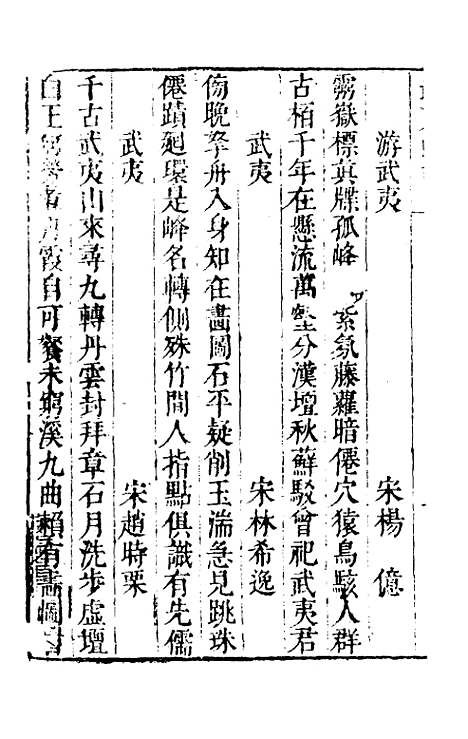 游武夷 宋楊億
靈嶽標真牒孤峰 紫氛藤蘿暗僊穴猿鳥駭人群
古栢千年在懸流萬壑分漢壇秋蘚駁曾祀武夷君
武夷 宋林希逸
傍晚拏舟入身知在畫圖石平疑削玉湍急見跳珠
僊蹟廻環是峰名轉側殊竹間人指點俱識有先儒
武夷 宋趙時栗
千古武夷山來尋九轉丹雲封拜章石月洗步虛壇
白玉 霞自可餐未窮溪九曲賴有畵圖